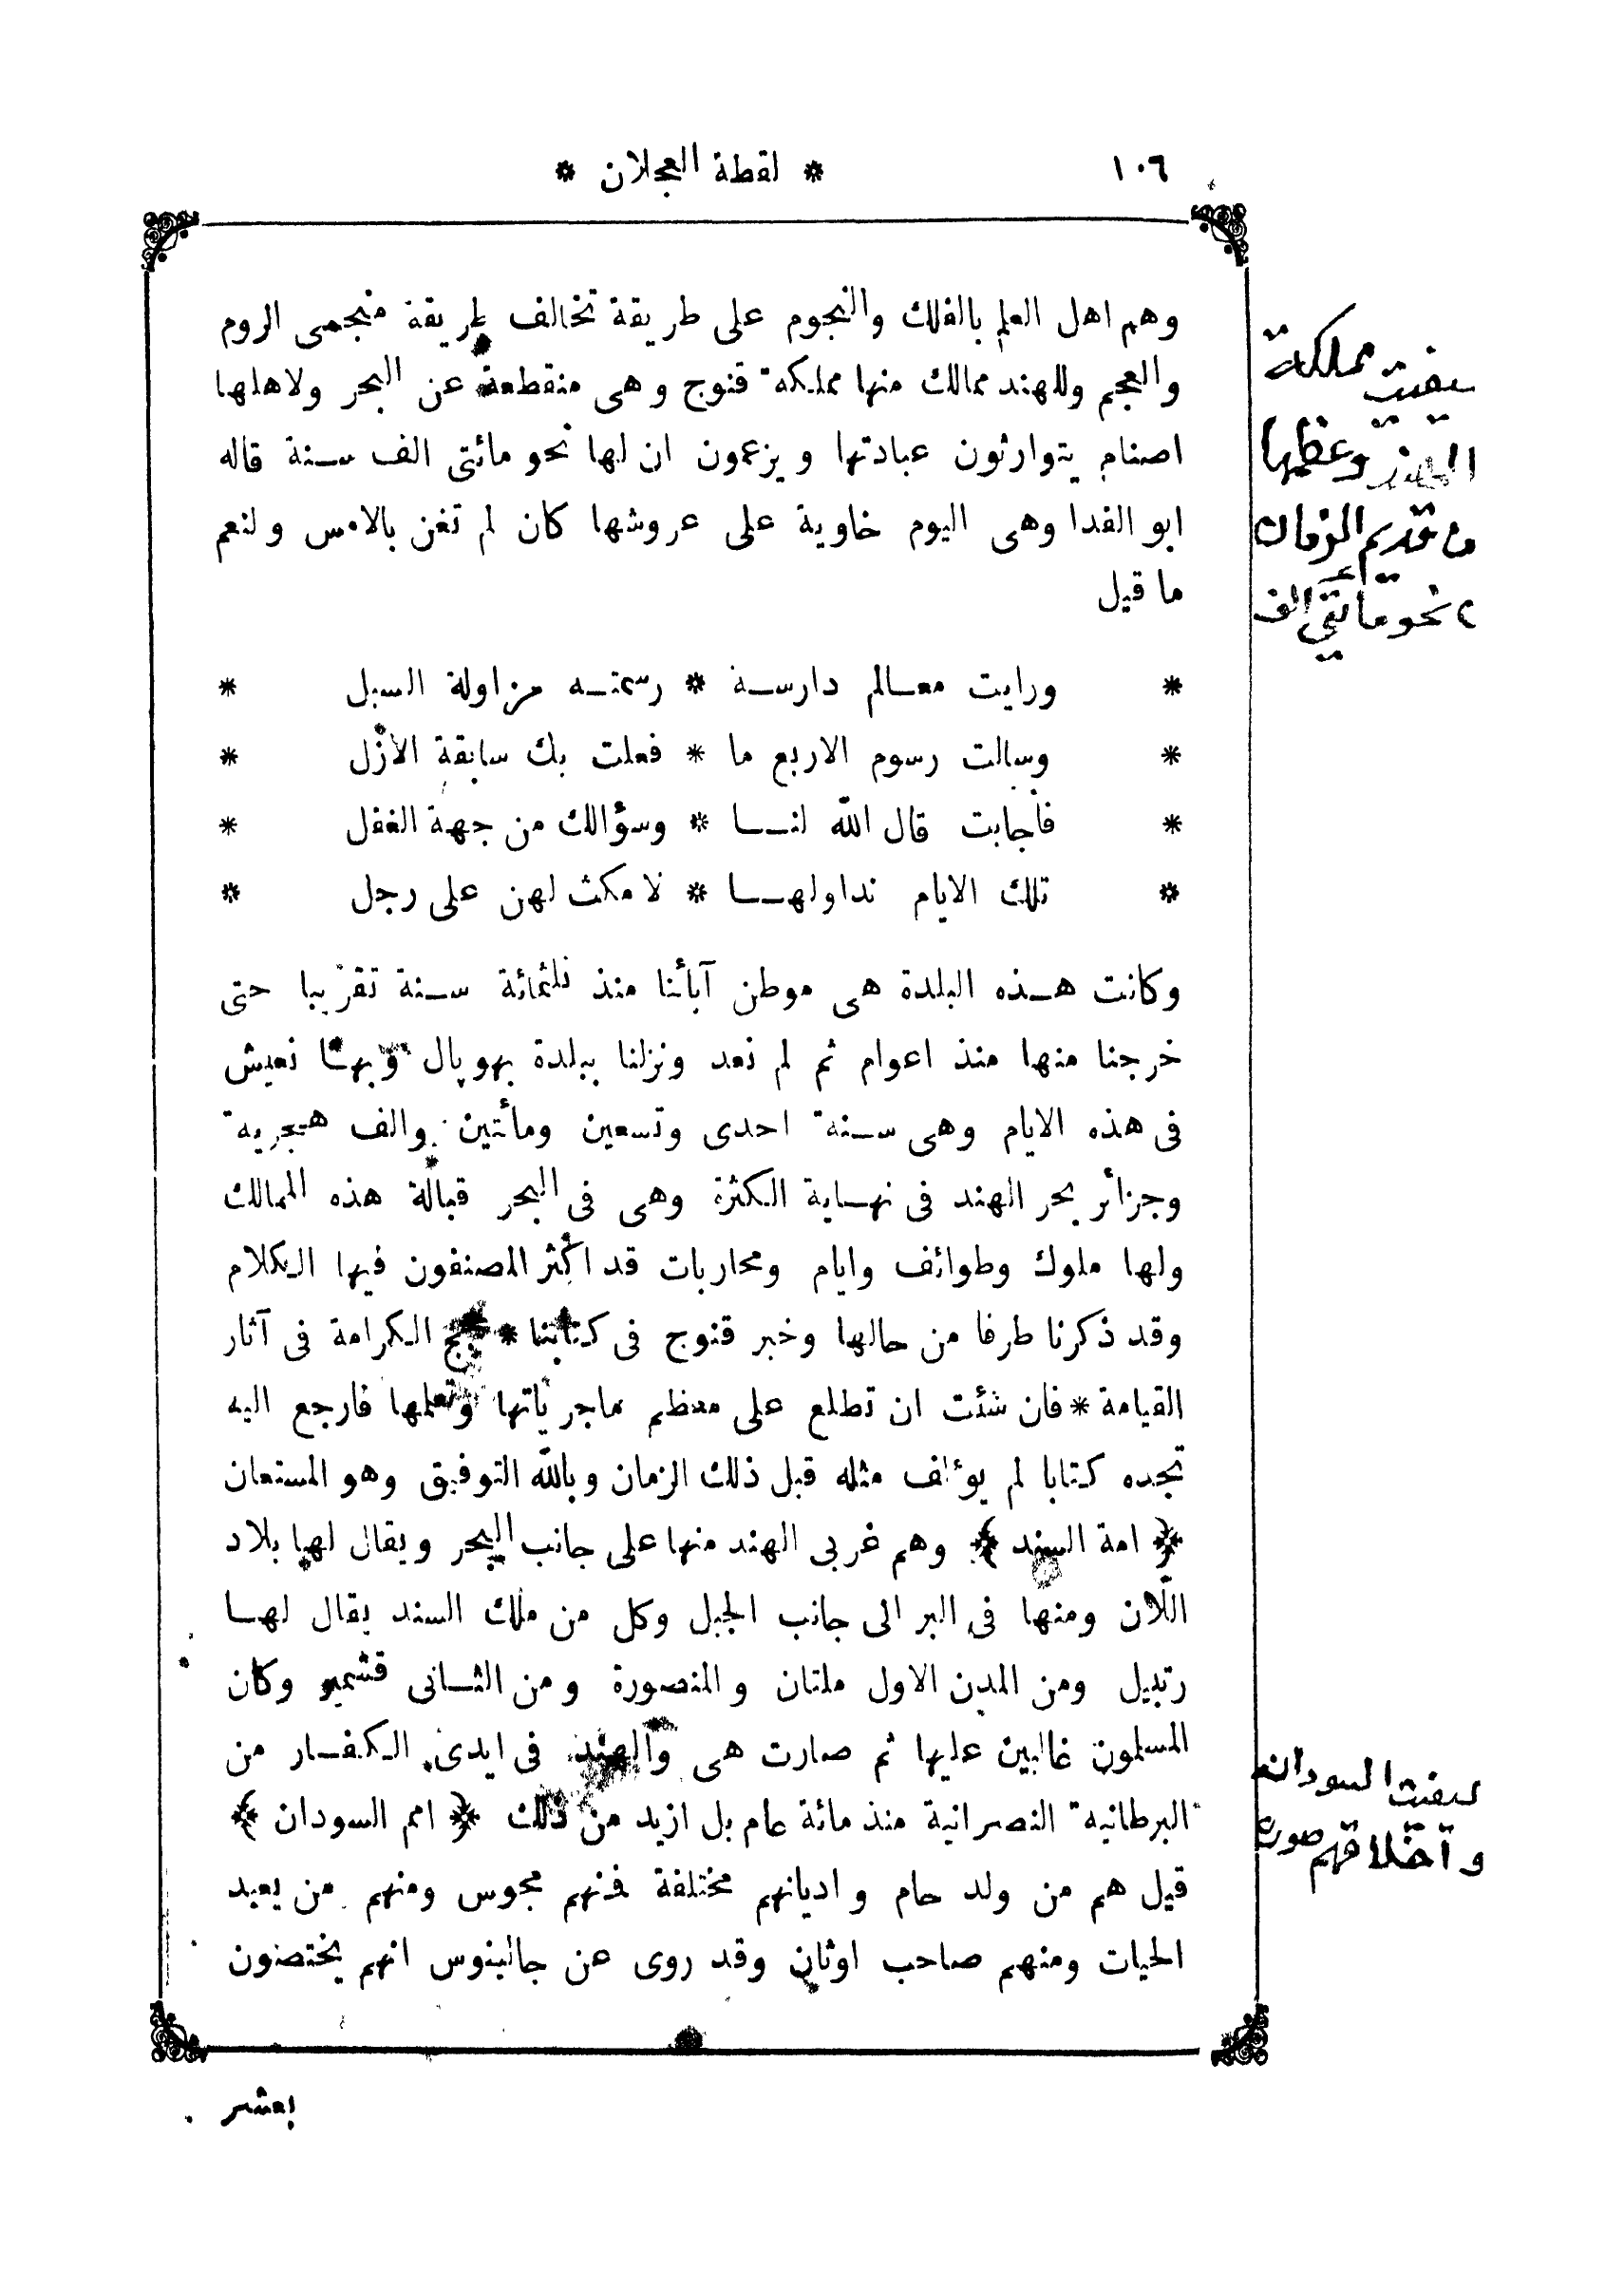 ١٠٦
* لقطة العجلان *
وهم اهل العلم بالفلك والنجوم على طريقة تخالف طريقة منجمى الروم
والعجم وللهند ممالك منها مملكة قنوج وهى منقطعة عن البحر ولاهلها
اصنام يتوارثون عبادتها ويزعمون ان لها نحو مائتى الف سنة قاله
ابو الفدا وهى اليوم خاوية على عروشها كان لم تغن بالامس ولنعم
ما قيل
* ورايت معالم دارسة * رسمته مزاولة السبل *
* وسالت رسوم الاربع ما * فعلت بك سابقة الأزل *
* فاجابت قال الله لنا * وسؤالك من جهة الغفل *
* تلك الايام نداولها * لا مكث لهن على رجل *
وكانت هذه البلدة هى موطن آبائنا منذ ثلثمائة سنة تقريبا حتى
خرجنا منها منذ اعوام ثم لم نعد ونزلنا ببلدة بهوپال وبها نعيش
فى هذه الايام وهى سنة احدى وتسعين ومأتين والف هجرية
وجزائر بحر الهند فى نهاية الكثرة وهى فى البحر قبالة هذه الممالك
ولها ملوك وطوائف وايام ومحاربات قد اكثر المصنفون فيها الكلام
وقد ذكرنا طرفا من حالها وخبر قنوج فى كتابنا * حجج الكرامة فى آثار
القيامة * فان شئت ان تطلع على معظم ماجرياتها وتعلمها فارجع اليه
تجده كتابا لم يؤلف مثله قبل ذلك الزمان وبالله التوفيق وهو المستعان
﴿ امة السند ﴾ وهم غربى الهند منها على جانب البحر ويقال لها بلاد
اللان ومنها فى البر الى جانب الجبل وكل من ملك السند يقال لها
رتبيل ومن المدن الاول ملتان والمنصورة ومن الثانى قشمير وكان
المسلمون غالبين عليها ثم صارت هى والهند فى ايدى الكفار من
البرطانية النصرانية منذ مائة عام بل ازيد من ذلك ﴿ امم السودان ﴾
قيل هم من ولد حام واديانهم مختلفة فمنهم مجوس ومنهم من يعبد
الحيات ومنهم صاحب اوثان وقد روى عن جالينوس انهم يختصون
بعشر
مملكة
الهند وعظمها
قديم الزمان
نحو مائتى الف
السودان